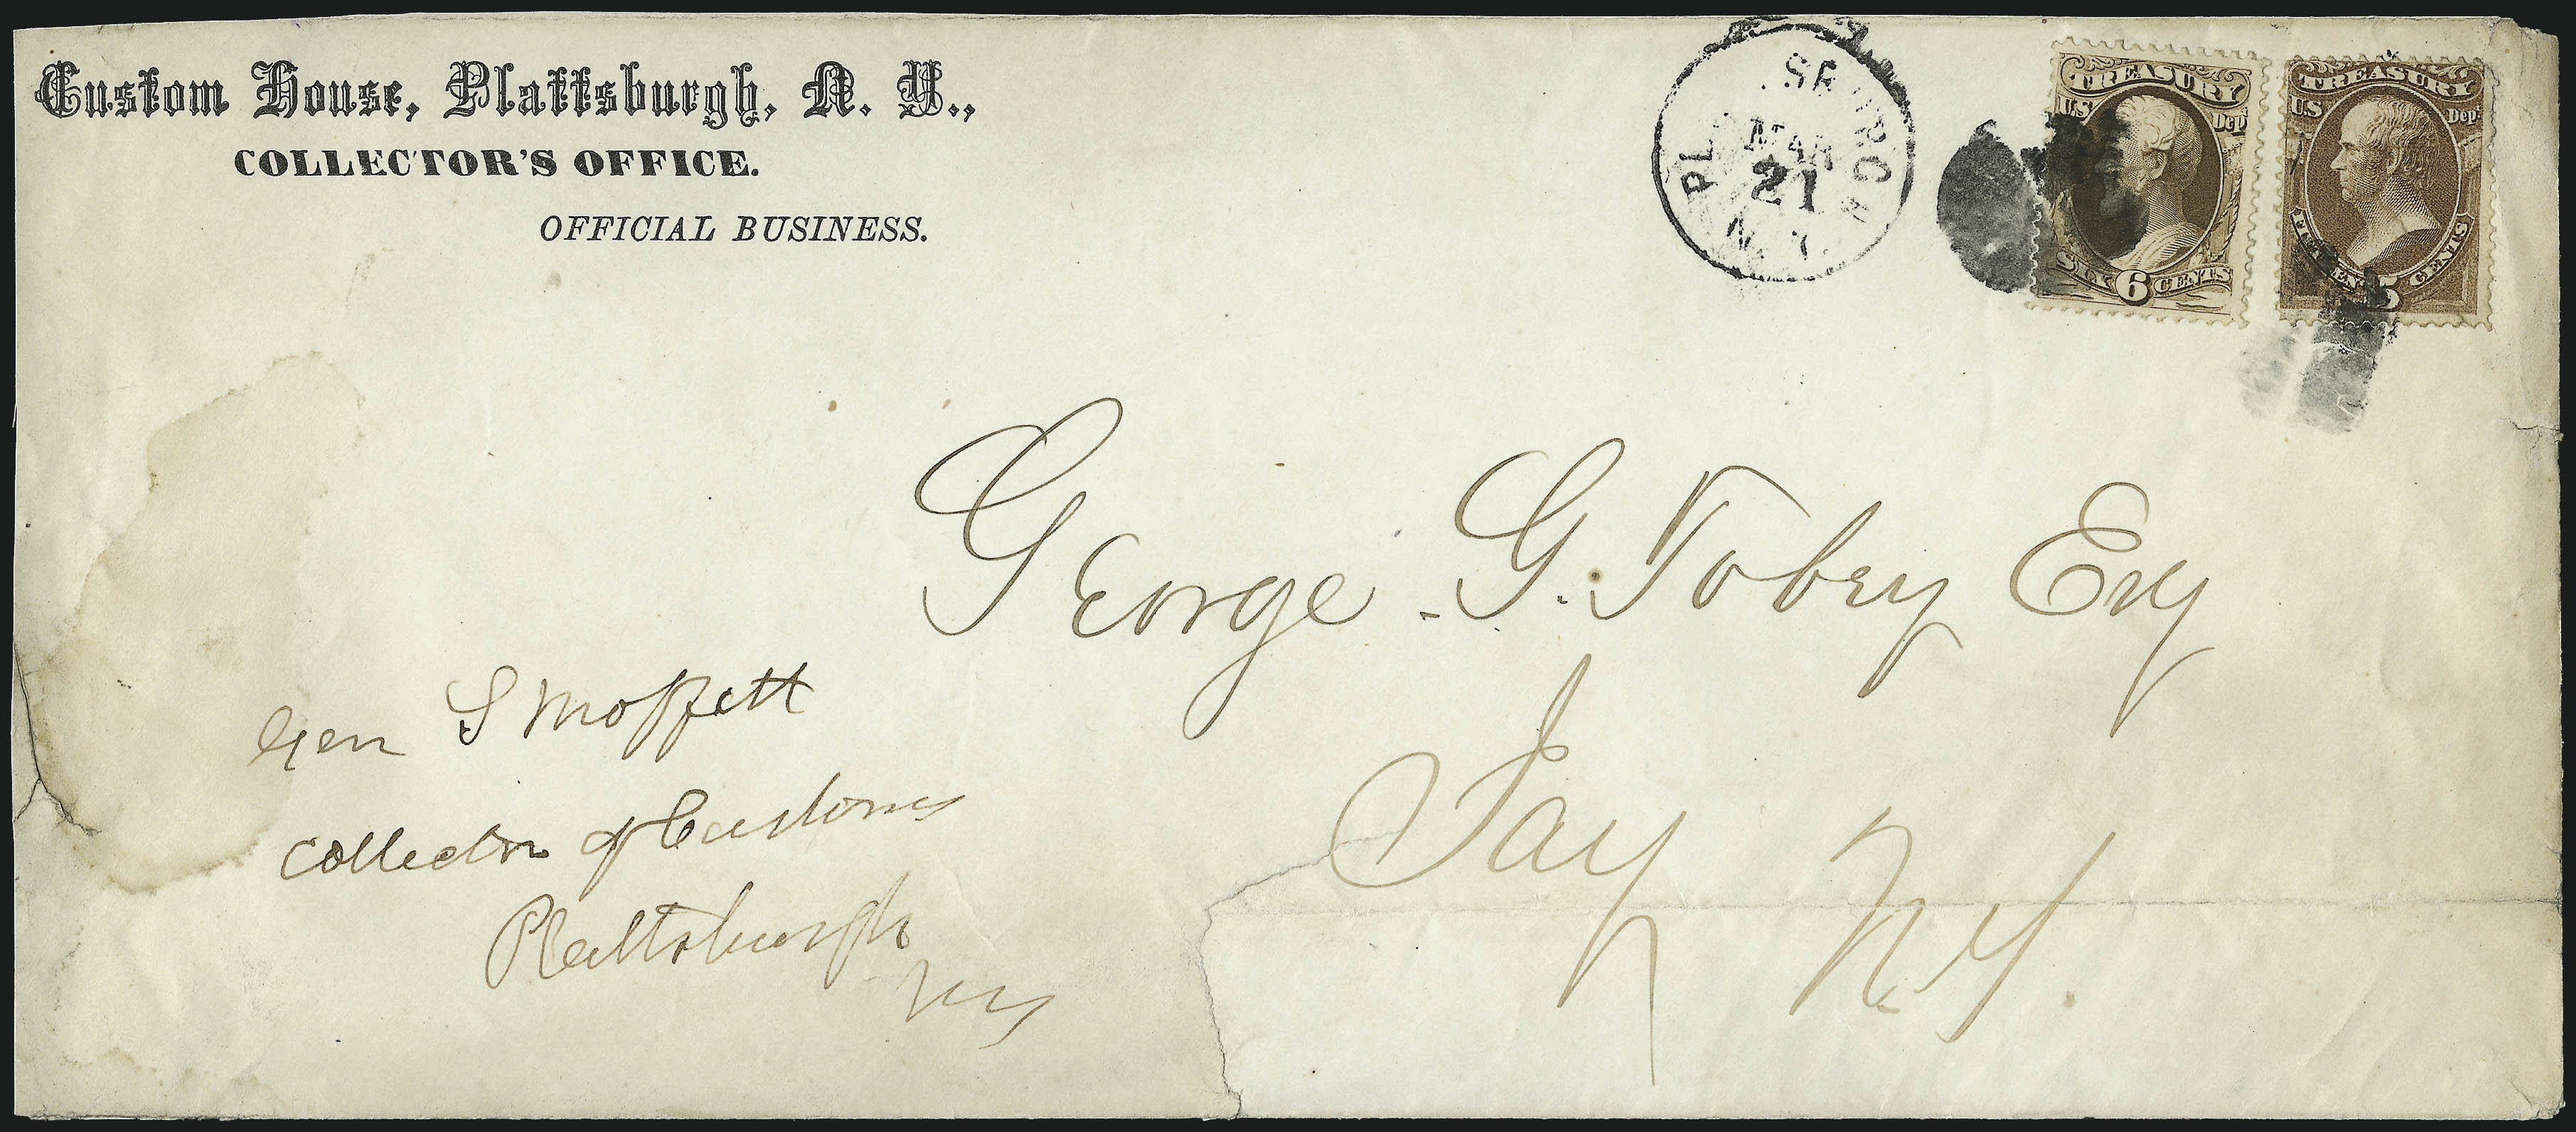 Custom House, Plattsburgh, N. Y.,
COLLECTOR'S OFFICE.
OFFICIAL BUSINESS.
MAR
21
N. Y.
TREASURY
U.S. Dept
SIX 6 CENTS
TREASURY
U.S. Dept
CENTS
George G. Tobey Esq
Jay N.Y.
Gen S Moffett
Collector of Customs
Plattsburgh
NY